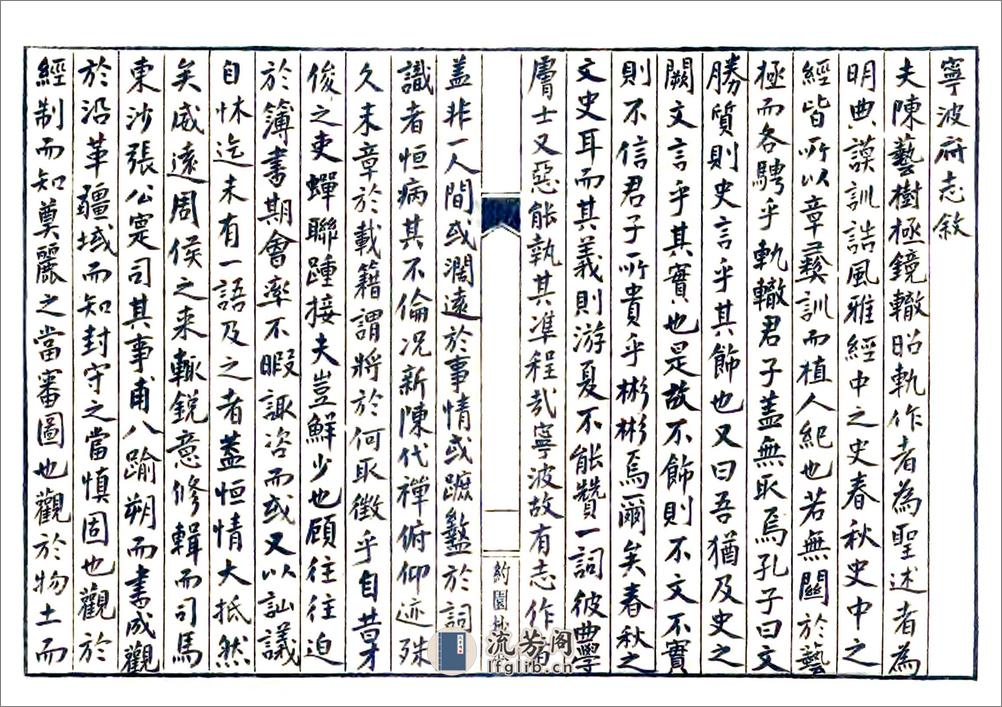 寧波府志敘
夫陳藝樹極鏡轍昭軌作者為聖述者為
明典謨訓誥風雅經中之史春秋史中之
經皆所以章彛訓而植人紀也若無關於藝
極而各騁乎軌轍君子蓋無取焉孔子曰文
勝質則史言乎其飾也又曰吾猶及史之
闕文言乎其實也是故不飾則不文不實
則不信君子所貴乎彬彬焉爾矣春秋之
文史耳而其義則游夏不能贊一詞彼典學
膚士又惡能執其準程哉寧波故有志作者
蓋非一人間或濶遠於事情或蹠盭於詞
識者恒病其不倫况新陳代禪俯仰迹殊
久未章於載籍謂將於何取徵乎自昔才
俊之吏蟬聯踵接夫豈鮮少也顧往往迫
於簿書期會率不暇諏咨而或又以訕議
自怵迄未有一語及之者蓋恒情大抵然
矣咸遠周侯之来輙銳意修輯而司馬
東沙張公寔司其事甫八踰朔而書成觀
於沿革疆域而知封守之當慎固也觀於
經制而知奠麗之當審圖也觀於物土而
約園抄
流芳阁
lfglib.cn